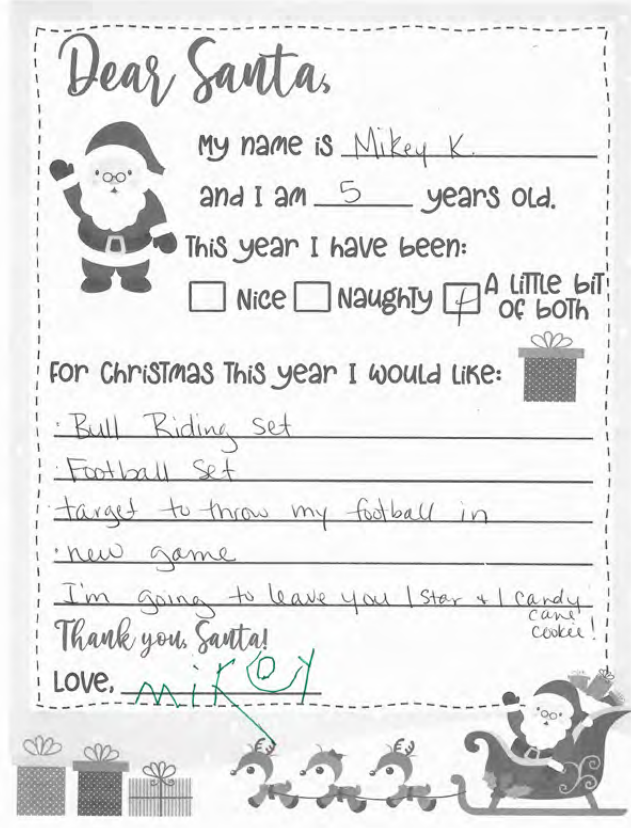 Dear Santa,
My name is Mikey K.
and I am 5 years old.
This year I have been:
Nice Naughty A little bit of both
For Christmas this year I would like:
· Bull Riding set
· Football Set
· target to throw my football in
· new game
I'm going to leave you 1 star + 1 candy
cane
cookie!
Thank you, Santa!
Love, mikey